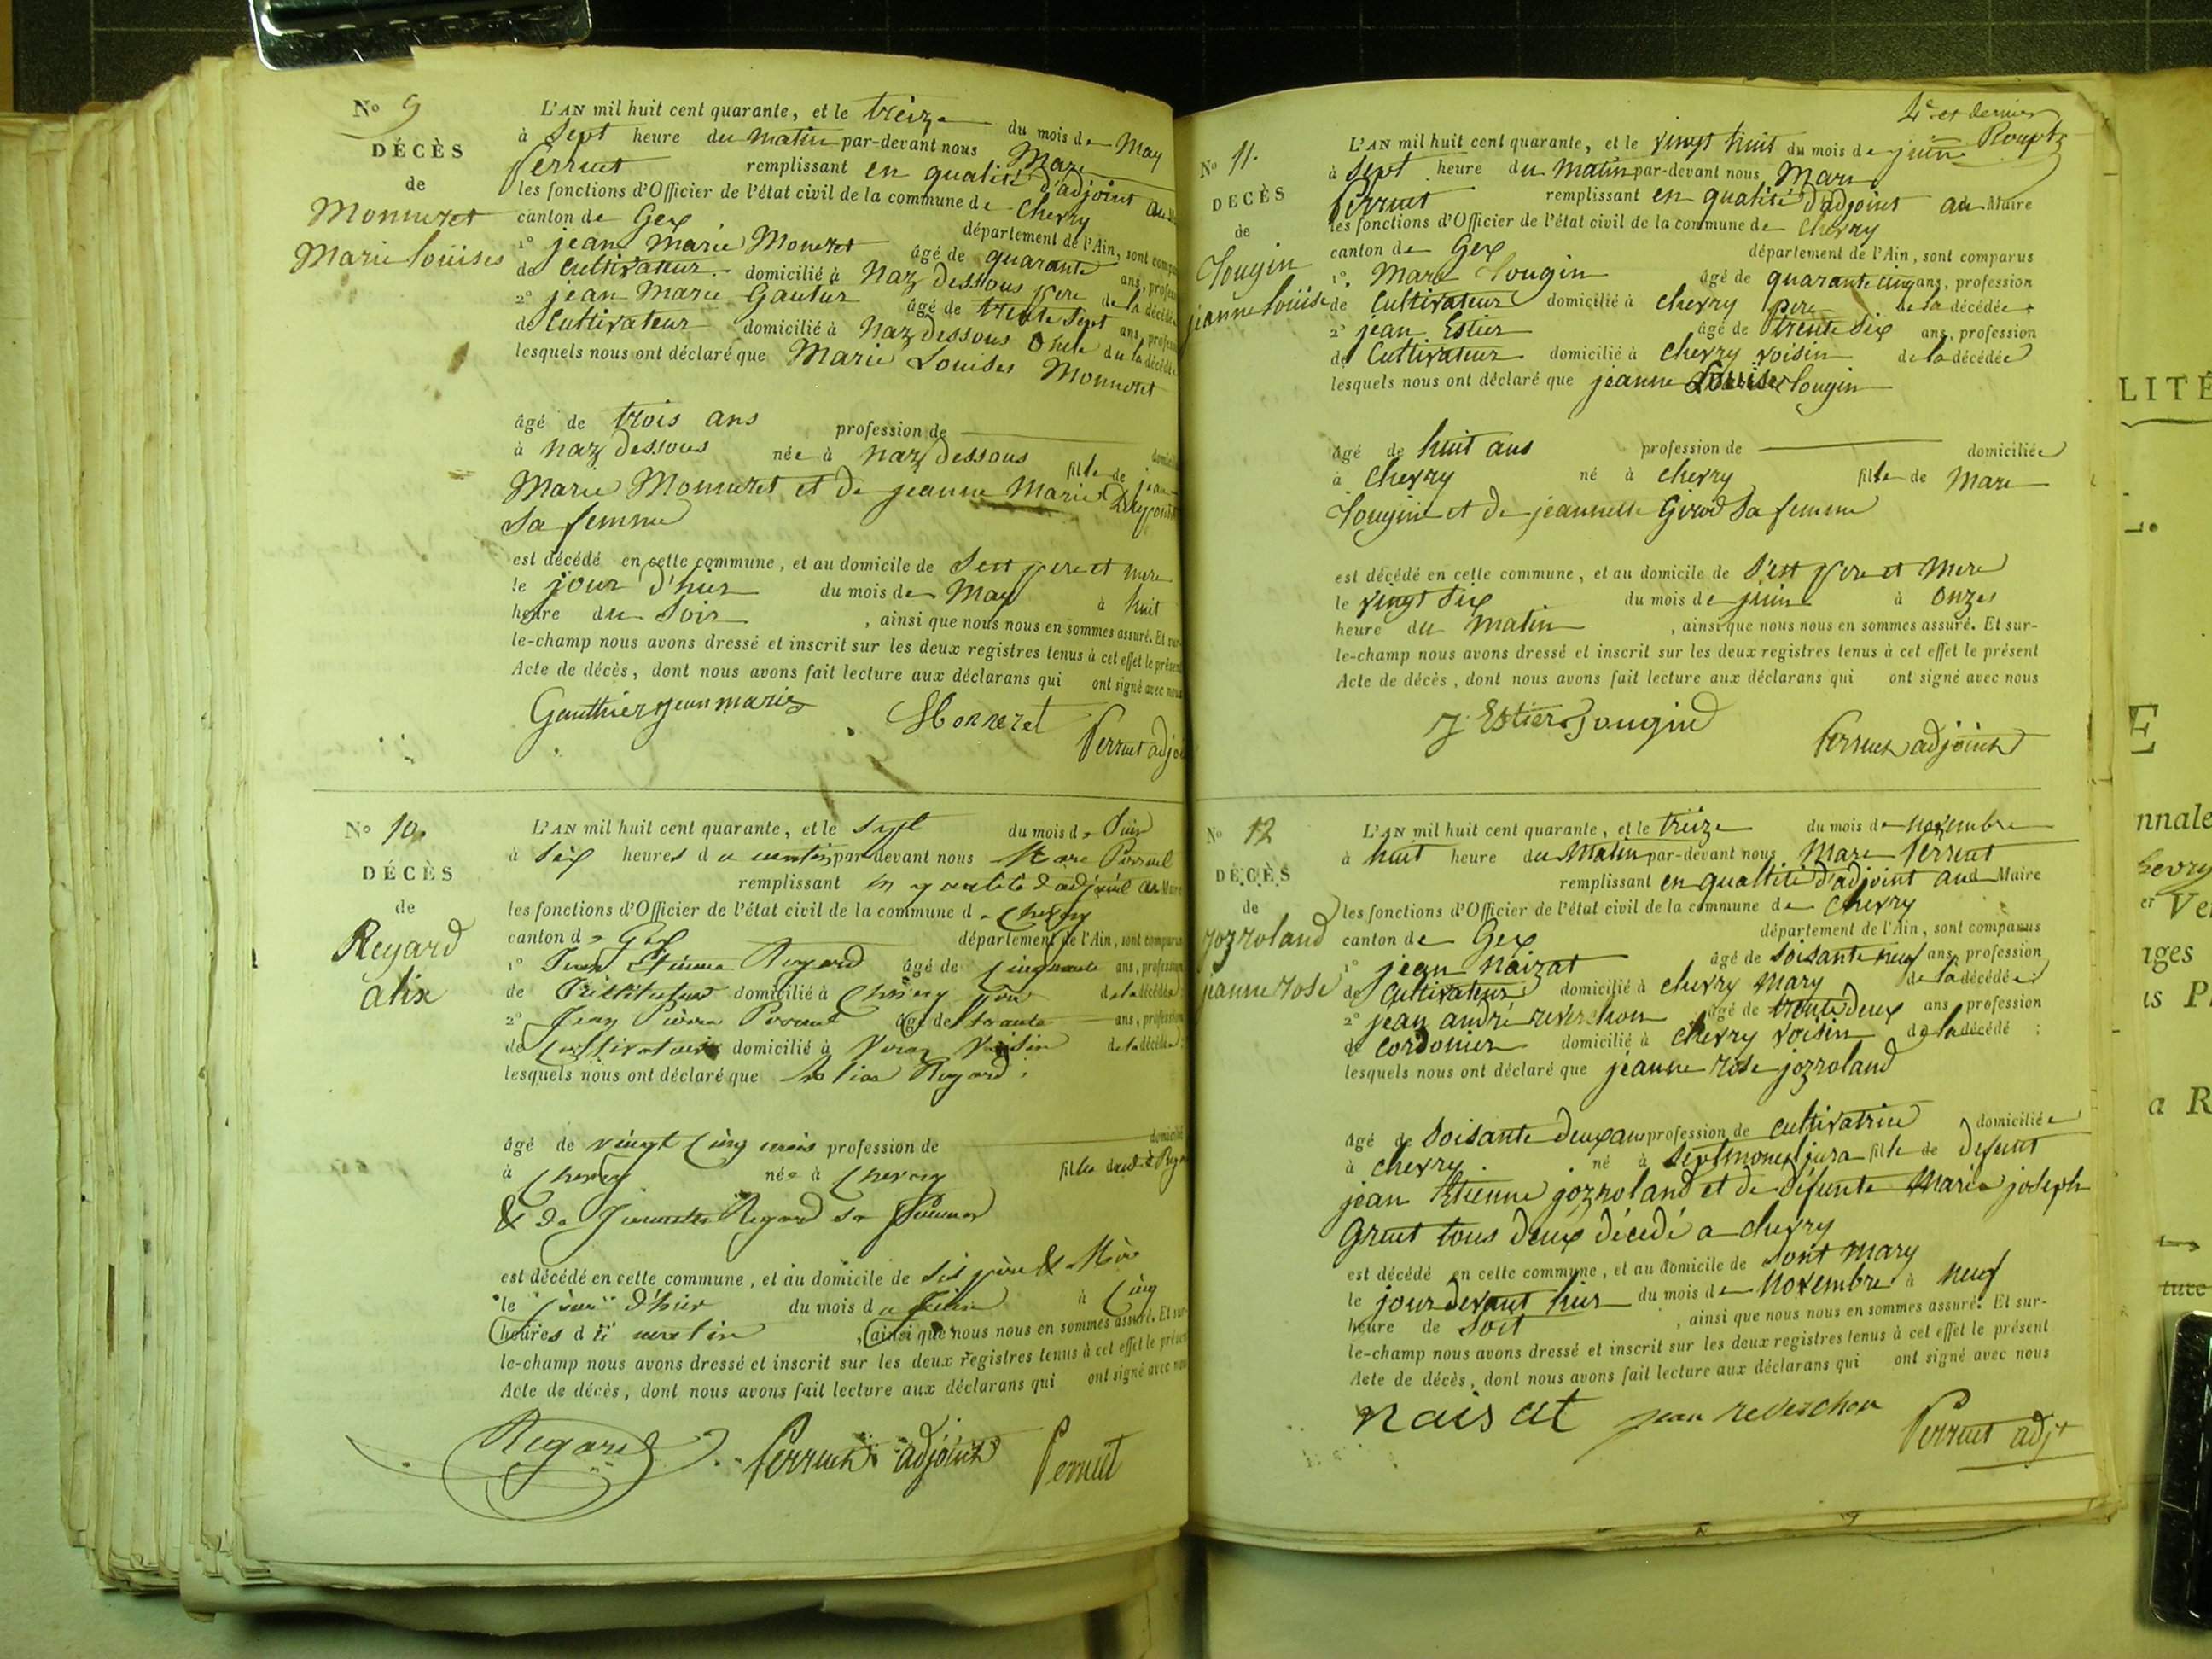 No 9
DÉCÈS
de
Monneret
Marie Louises
L'AN mil huit cent quarante, et le treize du mois de May
à Sept heure du matin par-devant nous Marc
Perruet remplissant en qualité d'adjoint au
les fonctions d'Officier de l'état civil de la commune de Chevry
canton de Gex département de l'Ain, sont
1° jean Marie Moneret âgé de quarante ans,
de Cultivateur domicilié à Naz dessous pere de la décédée
2° jean Marie Gautier âgé de trente Sept ans,
de Cultivateur domicilié à Naz dessous Oncle du la décédée
lesquels nous ont déclaré que Marie Louises Monneret
âgé de trois ans profession de
à Naz dessous née à Naz dessous fille de jean
Marie Monneret et de jeanne Marie
Sa femme
est décédé en cette commune, et au domicile de Ses pere et mere
le jour d'hier du mois de May à huit
heure du Soir , ainsi que nous nous en sommes assuré. Et sur-
le-champ nous avons dressé et inscrit sur les deux registres tenus à cet effet le présent
Acte de décès, dont nous avons fait lecture aux déclarans qui ont signé avec nous
Gauthier jean marie Monneret Perruet
No 10.
DÉCÈS
de
Regard
alix
L'AN mil huit cent quarante, et le Sept du mois de Juin
à Six heures du matin par devant nous Marc Perruet
remplissant en qualité d'adjoint au Maire
les fonctions d'Officier de l'état civil de la commune de Chevry
canton de Gex département de l'Ain, sont comparus
1° Jean Etienne Regard âgé de Cinquante ans, profession
de domicilié à Chevry de la décédée
2° Jean Pierre Perruet âgé de trente ans, profession
de Cultivateur domicilié à Veraz Voisin de la décédée
lesquels nous ont déclaré que Regard
âgé de vingt Cinq mois profession de
à Chevry née à Chevry fille
& de Regard sa femme
est décédé en cette commune, et au domicile de Ses père & Mère
le jour d'hier du mois de Juin à Cinq
heures du matin , ainsi que nous nous en sommes assuré. Et sur-
le-champ nous avons dressé et inscrit sur les deux registres tenus à cet effet le présent
Acte de décès, dont nous avons fait lecture aux déclarans qui ont signé avec nous
Regard Perruet adjoint Perruet
4e et dernier
No 11.
DÉCÈS
de
Jougin
jeanne Loüise
L'AN mil huit cent quarante, et le vingt huit du mois de juin
à Sept heure du matin par-devant nous Marc
Perruet remplissant en qualité d'adjoint au Maire
les fonctions d'Officier de l'état civil de la commune de Chevry
canton de Gex département de l'Ain, sont comparus
1° Marc Jougin âgé de quarante cinq ans, profession
de Cultivateur domicilié à chevry pere de la décédée
2° jean Estier âgé de trente Six ans, profession
de Cultivateur domicilié à chevry voisin de la décédée
lesquels nous ont déclaré que jeanne Louise Jougin
âgé de huit ans profession de domiciliée
à chevry né à chevry fille de Marc
Jougin et de jeannette Girod Sa femme
est décédé en cette commune, et au domicile de Ses pere et Mere
le vingt Six du mois de juin à Onzes
heure du Matin , ainsi que nous nous en sommes assuré. Et sur-
le-champ nous avons dressé et inscrit sur les deux registres tenus à cet effet le présent
Acte de décès, dont nous avons fait lecture aux déclarans qui ont signé avec nous
J. Estier Jougin Perruet adjoint
No 12
DÉCÈS
de
jozroland
jeanne rose
L'AN mil huit cent quarante, et le treize du mois de novembre
à huit heure du Matin par-devant nous Marc Perruet
remplissant en qualtité d'adjoint aud Maire
les fonctions d'Officier de l'état civil de la commune de Chevry
canton de Gex département de l'Ain, sont comparus
1° jean Naizat âgé de Soisante neuf ans, profession
de Cultivateur domicilié à chevry mary de la décédée
2° jean andré reverchon âgé de trente deux ans profession
de Cordonier domicilié à chevry voisin de la décédé ;
lesquels nous ont déclaré que jeanne rose jozroland
âgé de Soisante deux ans profession de cultivatrice domiciliée
à chevry né à Septmoncel jura fille de defunt
jean Etienne jozroland et de défunte Marie joseph
Gruet tous deux décedé a chevry
est décédé en cette commune, et au domicile de Sont mary
le jour devant hier du mois de Novembre à neuf
heure de Soit , ainsi que nous nous en sommes assuré. Et sur-
le-champ nous avons dressé et inscrit sur les deux registres tenus à cet effet le présent
Acte de décès, dont nous avons fait lecture aux déclarans qui ont signé avec nous
naisat jean reverchon Perruet adjt
LITÉ
E
nnale
a R